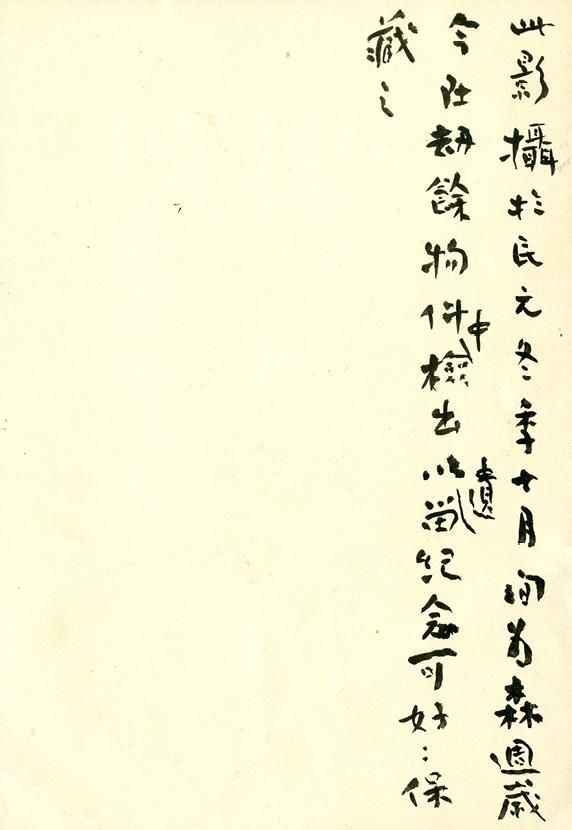 此影攝於民元冬季十月間為森週歲
今在劫餘物件中檢出以留遺紀念可好〻保
藏之